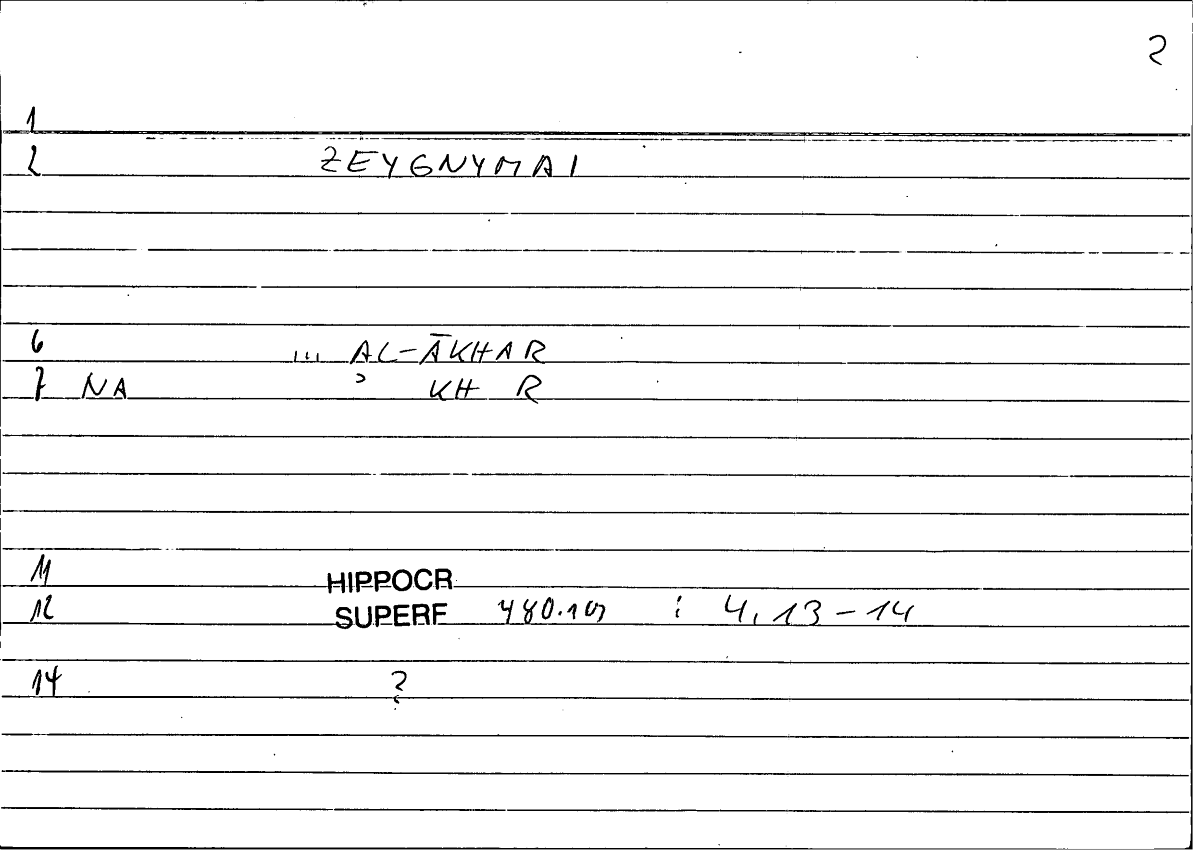 2
1
2 ZEYGNYMAI
6 ... AL-ĀKHAR
7 NA ʾ KH R
11 HIPPOCR
12 SUPERF : 4, 13-14
14 ?